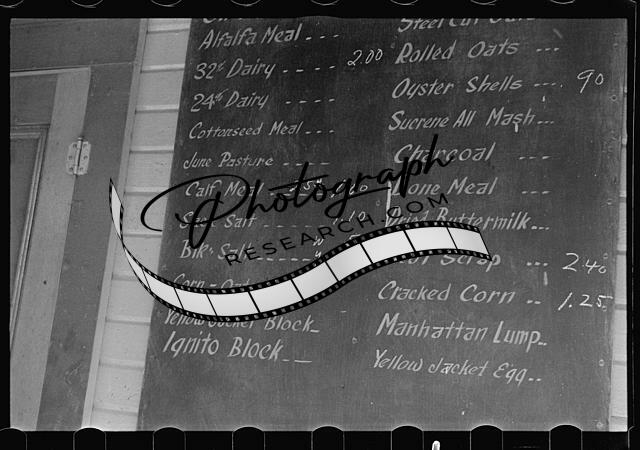 Alfalfa Meal ---
32% Dairy ---- 2.00
24% Dairy ----
Cottonseed Meal ---
June Pasture -----
Calf Meal
Salt
Blk. Salt
Corn
Yellow Jacket Block
Ignito Block ---
Steel Cut Oats
Rolled Oats ---
Oyster Shells ---- 90
Sucrene All Mash ---
Charcoal ---
Bone Meal ---
Dried Buttermilk ...
Scrap --- 2.40
Cracked Corn -- 1.25
Manhattan Lump --
Yellow Jacket Egg --
Photograph
RESEARCH.COM